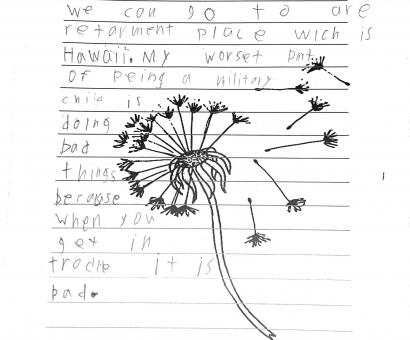 we can go to are
retarment place wich is
Hawaii. My worset part
of being a military
child is
doing
bad
things
because
when you
get in
troble it is
bad.